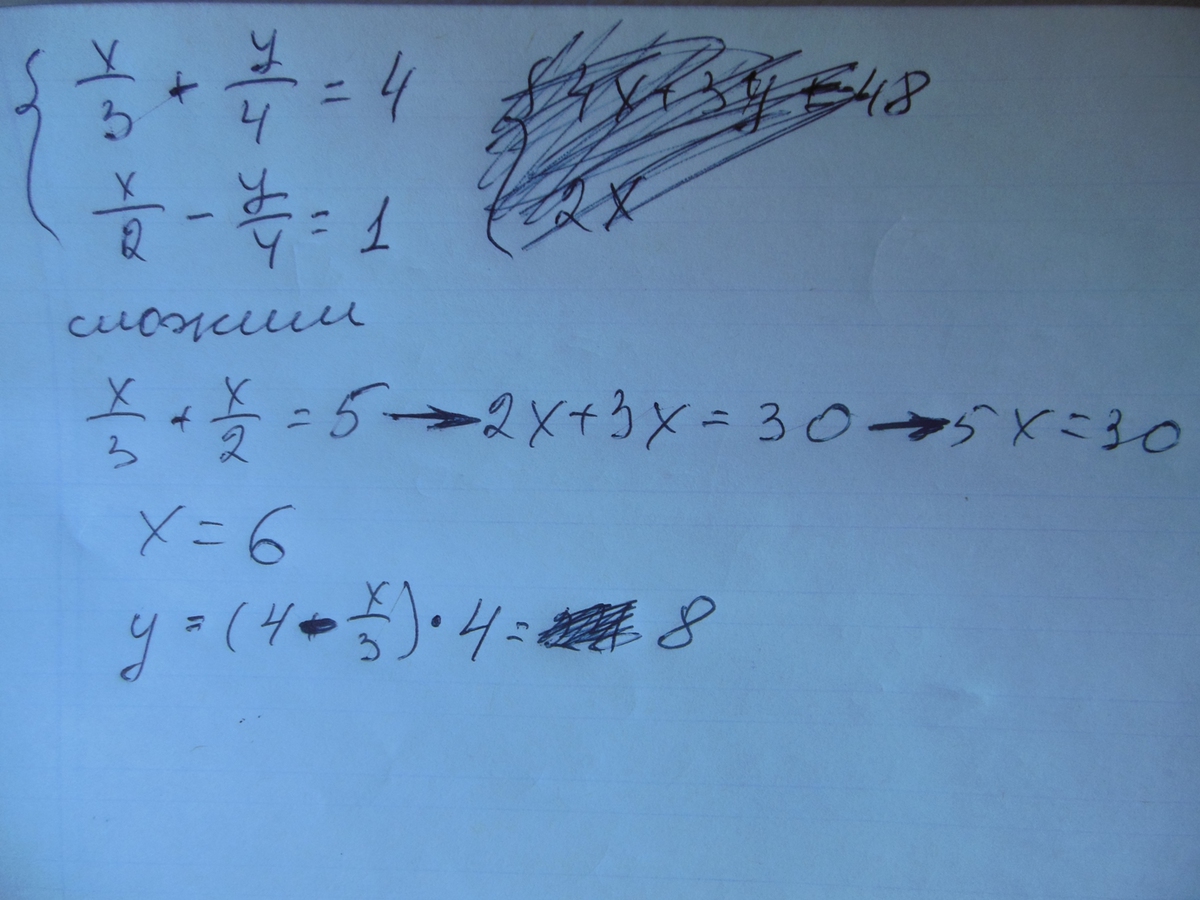 { x/3 + y/4 = 4 { 4x + 3y = 48
x/2 - y/4 = 1 2x
сложим
x/3 + x/2 = 5 → 2x + 3x = 30 → 5x = 30
x = 6
y = (4 - x/3) · 4 = 8